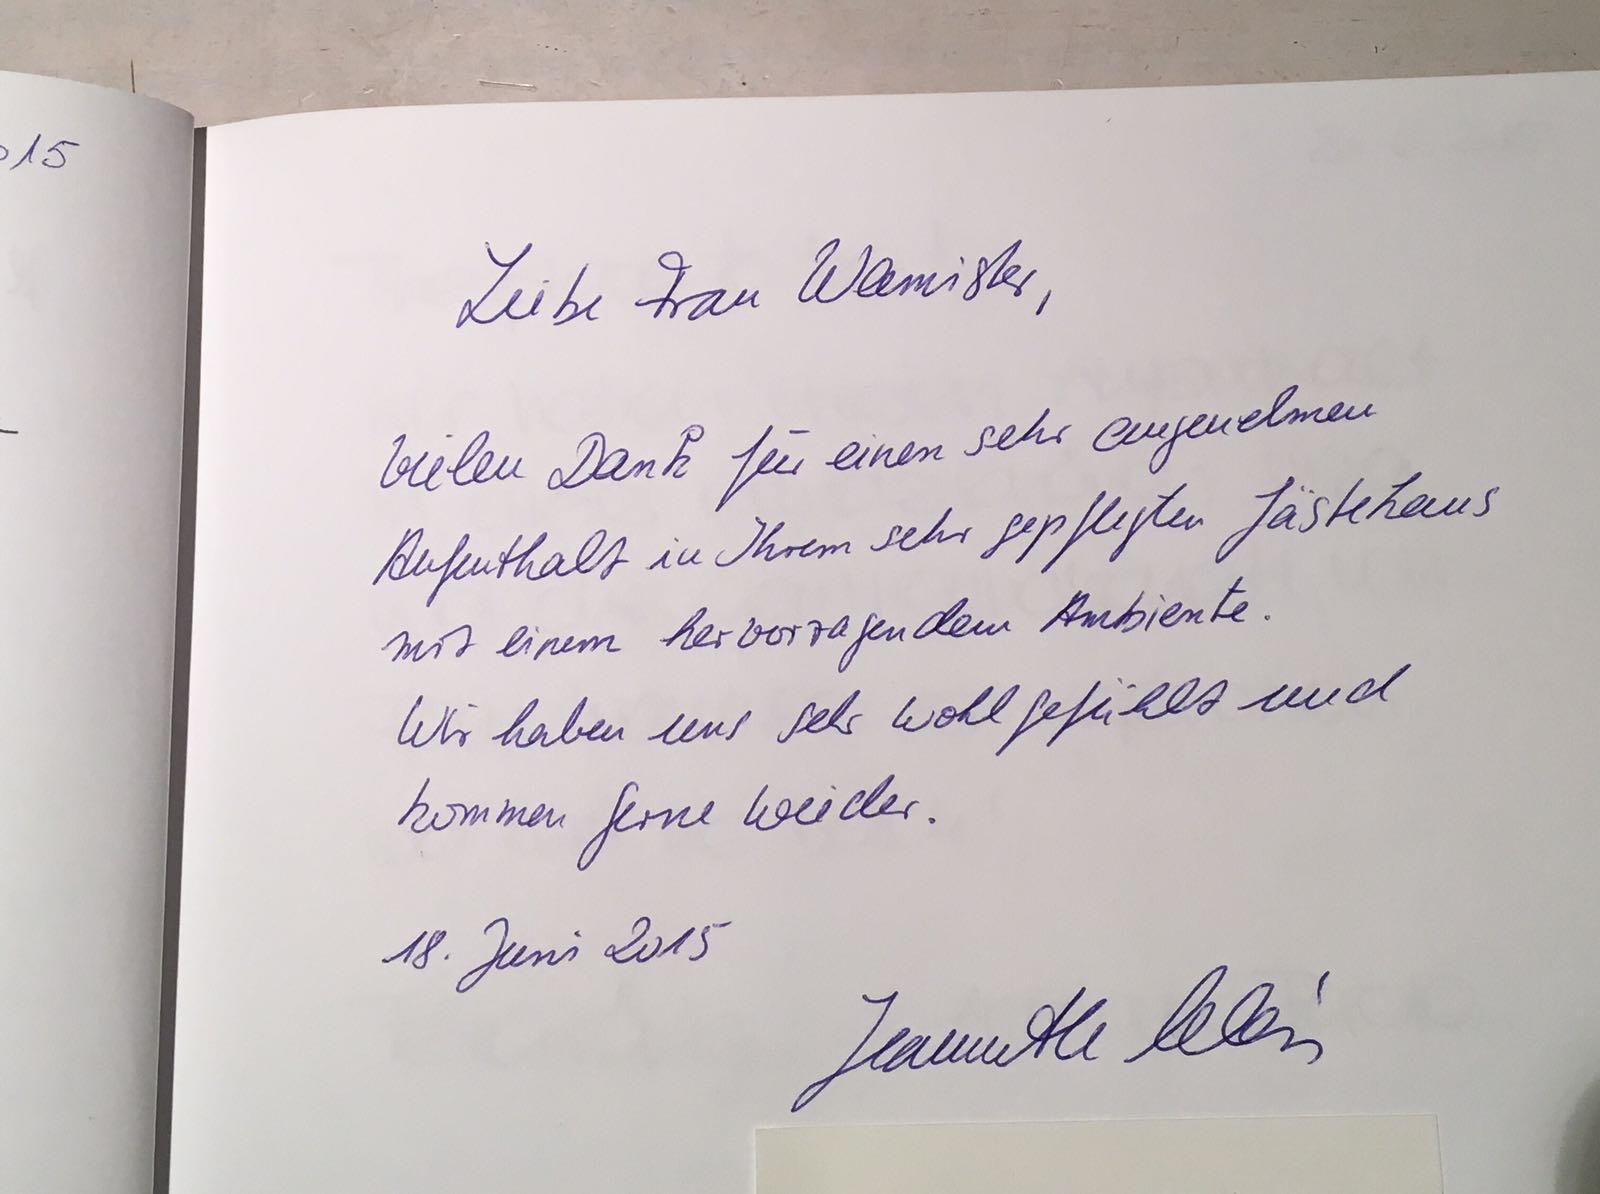 2015
Liebe Frau Wamister,
vielen Dank für einen sehr angenehmen
Aufenthalt in Ihrem sehr gepflegten Gästehaus
mit einem hervorragendem Ambiente.
Wir haben uns sehr wohl gefühlt und
kommen gerne wieder.
18. Juni 2015
Jeannette